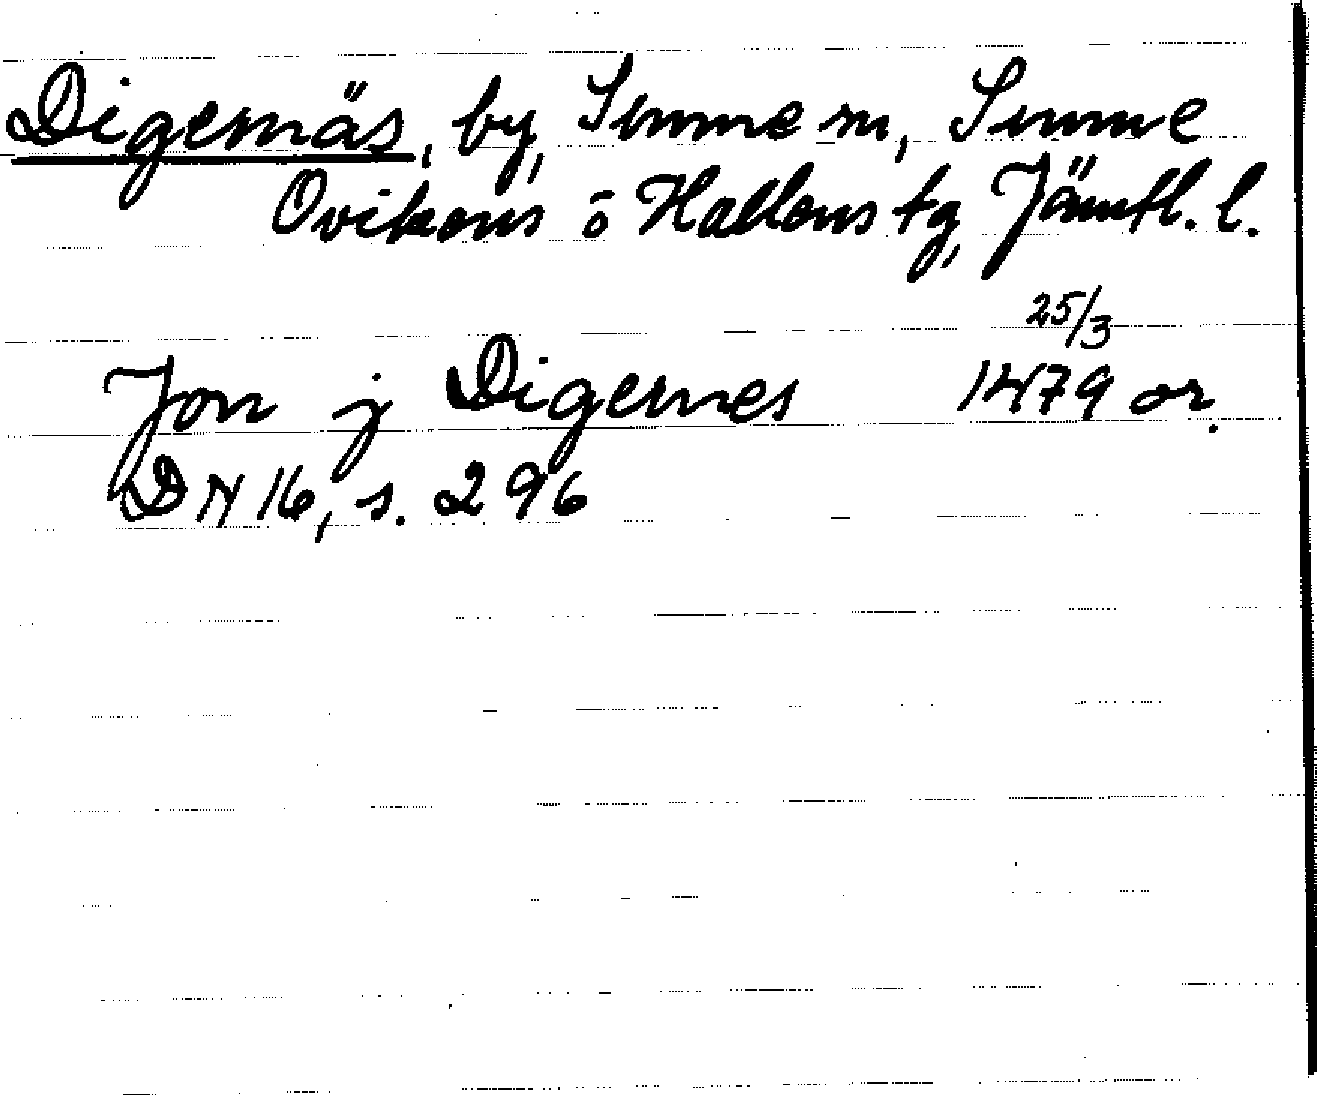 Digernäs, by, Sunne sn, Sunne
Ovikens o Hallens tg, Jämtl. l.
25/3
Jon j Digernes 1479 or.
DN 16, s. 296